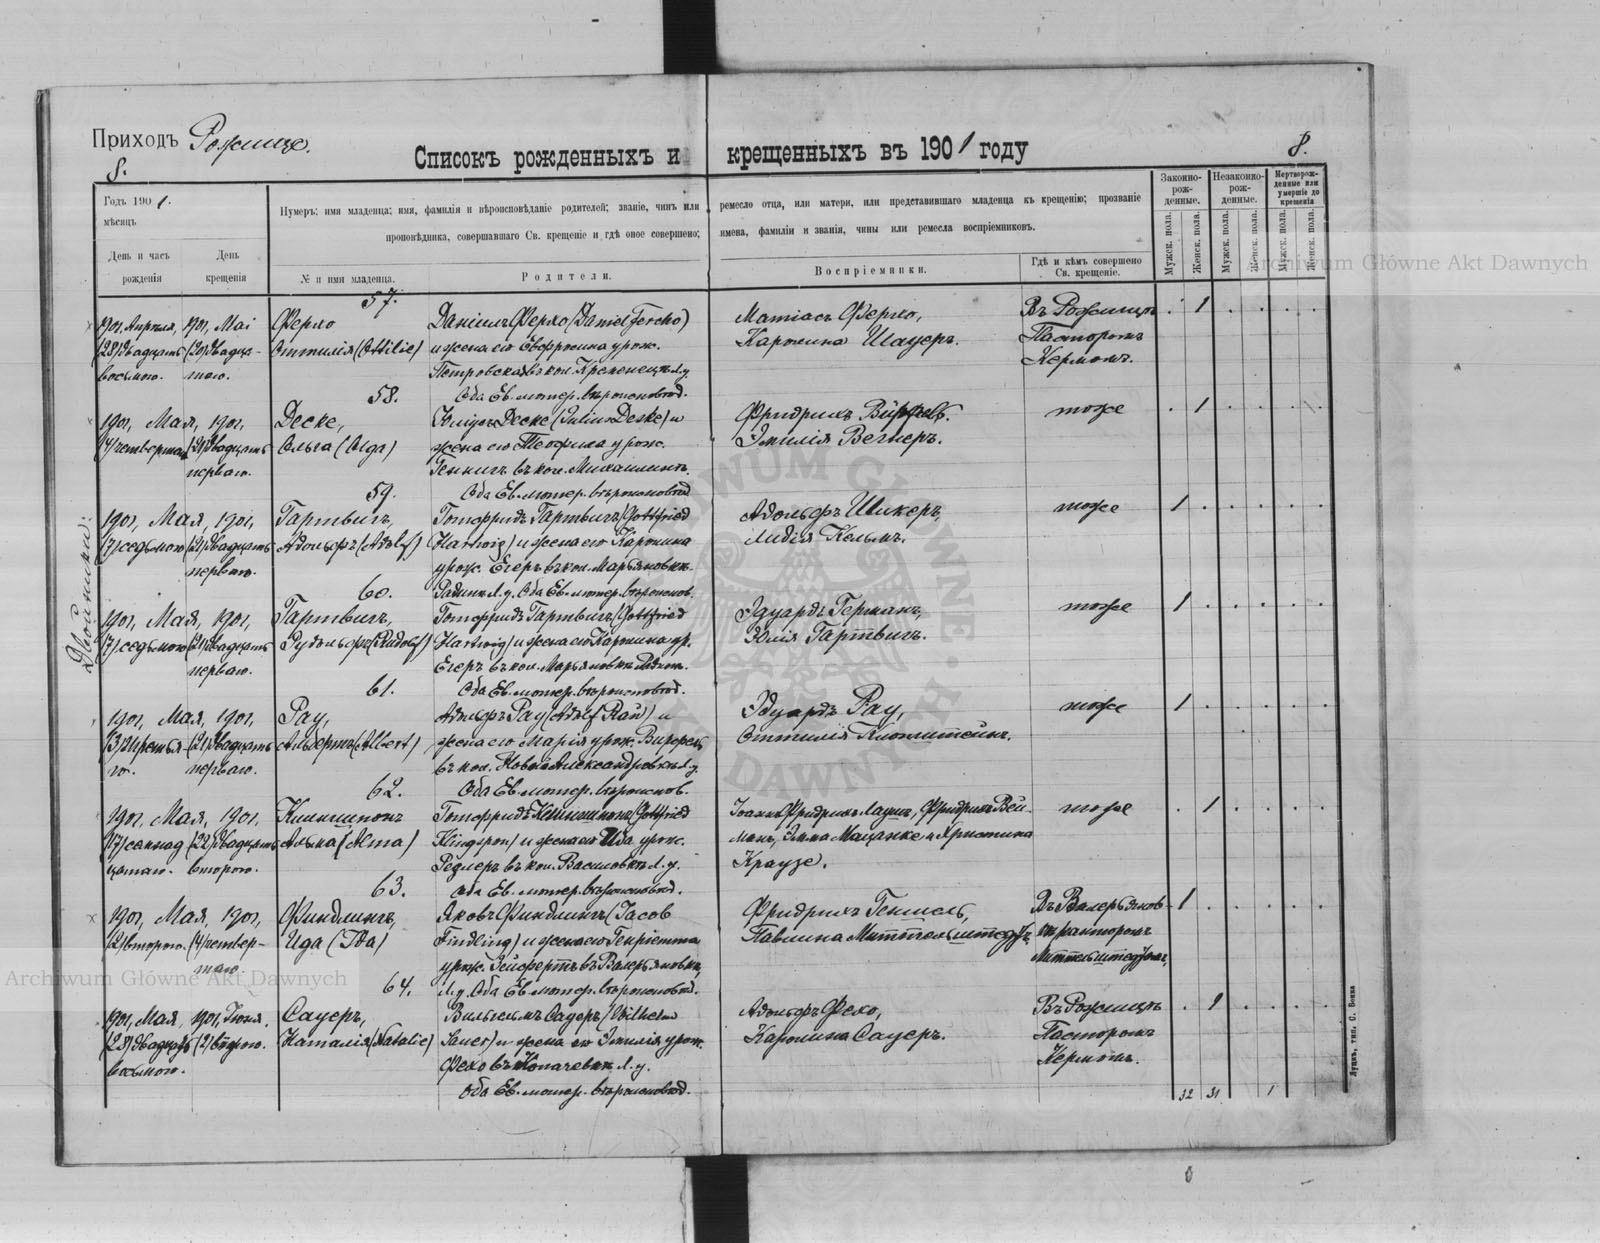 Приходъ Рожище.
8.
Списокъ рожденныхъ и крещенныхъ въ 1901 году
8.
Годъ 1901.
мѣсяцъ
День и часъ рожденія
День крещенія
Нумеръ; имя младенца; имя, фамилія и вѣроисповѣданіе родителей; званіе, чинъ или ремесло отца, или матери, или представившаго младенца къ крещенію; прозваніе
проповѣдника, совершавшаго Св. крещеніе и гдѣ оное совершено; имена, фамиліи и званія, чины или ремесла воспріемниковъ.
№ и имя младенца.
Родители.
Воспріемники.
Гдѣ и кѣмъ совершено Св. крещеніе.
Законно-рож-денные.
Незаконно-рож-денные.
Мертворож-денные или умершіе до крещенія
Мужск. пола.
Женск. пола.
Мужск. пола.
Женск. пола.
Мужск. пола.
Женск. пола.
57.
1901, Апрѣля, 1901, Маі Ферхо Даніилъ Ферхо (Daniel Fercho) Матіасъ Ферхо, Въ Рожищѣ . 1 . . . .
(28) двадцать (20) двадца- Оттилія (Ottilie) и жена его Евфрозина урож. Каролина Шауеръ. Пасторомъ
восьмого. таго. Петровская въ кол. Кременецъ Л.у. Кермомъ.
58. Оба Ев. лютер. вѣроисповѣд.
1901, Мая, 1901, Деске, Юліусъ Деске (Julius Deske) и Фридрихъ тоже . 1 . . . .
(4) четвертаго (21) двадцать Ольга (Olga) жена его Теофила урож. Эмилія Вегнеръ.
перваго. Геннигъ въ кол. Михаилинъ.
59. Оба Ев. лютер. вѣроисповѣд
Двойники:
1901, Мая, 1901, Гартвигъ, Готфридъ Гартвигъ (Gottfried Адольфъ Шикеръ, тоже 1 . . . . .
(7) седьмого (21) двадцать Адольфъ (Adolf) Hartwig) и жена его Каролина Лидія Кельмъ.
перваго. урож. Егеръ въ кол. Марьяновкѣ
60. Радинъ Л.у. Оба Ев. лютер. вѣроиспов.
1901, Мая, 1901, Гартвигъ, Готфридъ Гартвигъ (Gottfried Эдуардъ Германъ, тоже 1 . . . . .
(7) седьмого (21) двадцать Рудольфъ (Rudolf) Hartwig) и жена его Каролина ур. Юлія Гартвигъ.
перваго. Егеръ въ кол. Марьяновкѣ
61. Оба Ев. лютер. вѣроисповѣд.
1901, Мая, 1901, Рау, Адольфъ Рау (Adolf Rau) и Эдуардъ Рау, тоже 1 . . . . .
(3) третья- (21) двадцать Альбертъ (Albert) жена его Марія урож. Оттилія
го. перваго. въ кол. Новой Александровкѣ Л.у.
62. Оба Ев. лютер. вѣроиспов.
1901, Мая, 1901, Клингшпонъ Готфридъ Клингшпонъ (Gottfried Іоанъ Фридрихъ Фридрихъ Вей- тоже . 1 . . . .
(17) семнад (22) двадцать Альма (Alma) и жена его Ида урож. манъ, Эмма Мацанке и Христина
цатаго. второго. Редлеръ въ кол. Василовкѣ Л.у. Краузе.
63. Оба Ев. лютер. вѣроисповѣд.
1901, Мая, 1901, Финдлингъ, Яковъ Финдлингъ (Jacob Фридрихъ Геншель, Въ Валерьянов- 1 . . . . .
(2) второго. (4) четвер- Ида (Ida) Findling) и жена его Генріетта Павлина Миттельштедтъ. кѣ пасторомъ
таго. урож. Зейфертъ въ Валерьяновкѣ, Миттельштедтомъ,
64. Л.у. Оба Ев. лютер. вѣроисповѣд.
1901, Мая, 1901, Іюня. Сауеръ, Вильгельмъ Сауеръ (Wilhelm Адольфъ Фехо, Въ Рожищѣ . 1 . . . .
(28) двадцать (2) второго. Наталія (Natalie) Sauer) и жена его Эмилія урож. Каролина Сауеръ. Пасторомъ
восьмого. Фехо въ Копачевкѣ Л.у. Кермомъ.
Оба Ев. лютер. вѣроисповѣд.
32 31 1
Луцкъ, тип. С. Бонка
Archiwum Główne Akt Dawnych
Archiwum Główne Akt Dawnych
ARCHIWUM GŁÓWNE AKT DAWNYCH